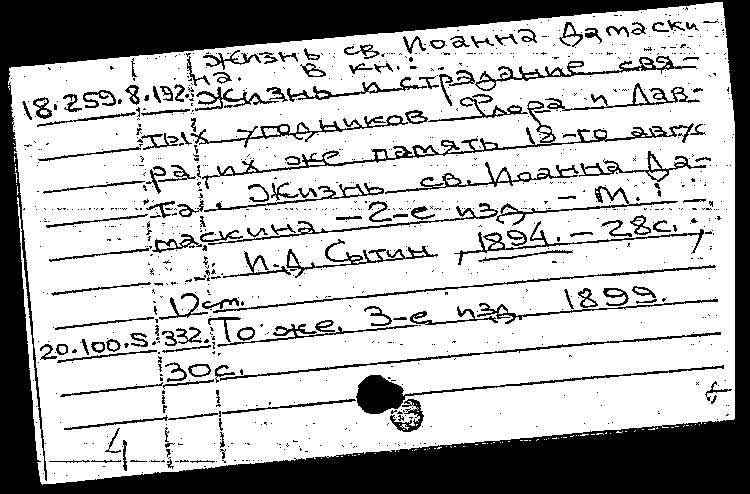 Жизнь св. Иоанна Дамаски-
на. В кн.:
18.259.8.192. Жизнь и страдание свя-
тых угодников Флора и Лав-
ра, их же память 18-го авгус
та. Жизнь св. Иоанна Да-
маскина. – 2-е изд. – М.:
И.Д. Сытин, 1894. – 28с.;
17см.
20.100.5.332. То же. 3-е изд. 1899.
30с.
4